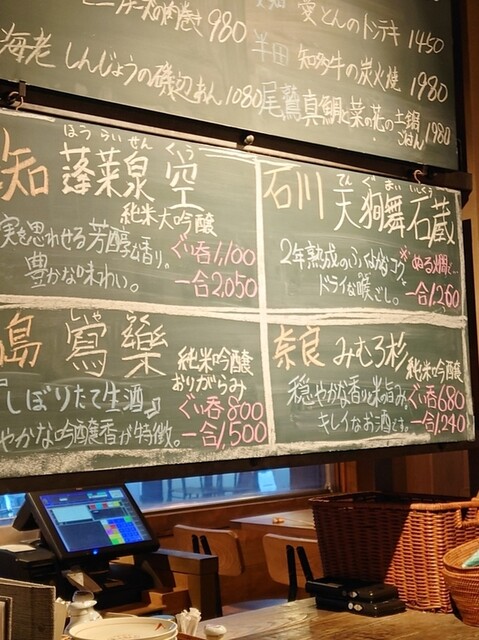 肉巻き 980
海老 しんじょうの磯辺あん 1080
愛とんのトンテキ 1450
半田 知多牛の炭火焼 1980
尾鷲 真鯛と菜の花の土鍋ごはん 1980
知 蓬莱泉 空
ほうらいせん くう
純米大吟醸
実を思わせる芳醇な香り。
豊かな味わい。
ぐい呑 1,100
一合 2,050
石川 天狗舞 石蔵
てんぐまい いしくら
2年熟成のふくよかなコク
ドライな喉ごし。
※ぬる燗で…
一合 1,260
島 鶯樂
純米吟醸
おりがらみ
『しぼりたて生酒』
やかな吟醸香が特徴。
ぐい呑 800
一合 1,500
奈良 みむろ杉
純米吟醸
穏やかな香りと米の旨み。
キレイなお酒です。
ぐい呑 680
一合 1,240